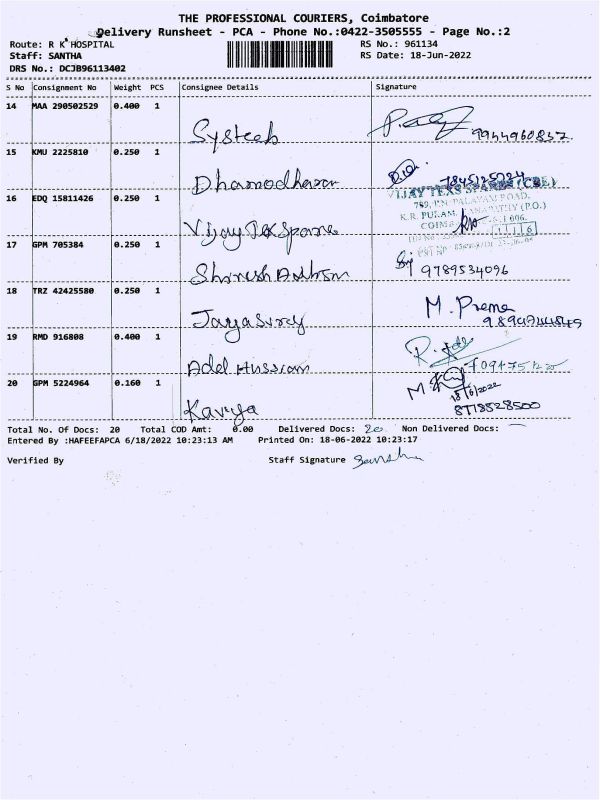 THE PROFESSIONAL COURIERS, Coimbatore
Delivery Runsheet - PCA - Phone No.:0422-3505555 - Page No.:2
Route: R K HOSPITAL RS No.: 961134
Staff: SANTHA RS Date: 18-Jun-2022
DRS No.: DCJB96113402
S No Consignment No Weight PCS Consignee Details Signature
14 MAA 290502529 0.400 1
Systech 9944960837
15 KMU 2225810 0.250 1
Dhamodharan
VIJAY TEXS SPARES (CBE)
16 EDQ 15811426 0.250 1
Vijay Tex Spare
17 GPM 705384 0.250 1
9789534096
18 TRZ 42425580 0.250 1
M. Prema
Jayasurey
19 RMD 916808 0.400 1
Adel Hussiam
20 GPM 5224964 0.160 1
18/6/2022
Kavya 8718528500
Total No. Of Docs: 20 Total COD Amt: 0.00 Delivered Docs: 20 Non Delivered Docs: —
Entered By :HAFEEFAPCA 6/18/2022 10:23:13 AM Printed On: 18-06-2022 10:23:17
Verified By Staff Signature